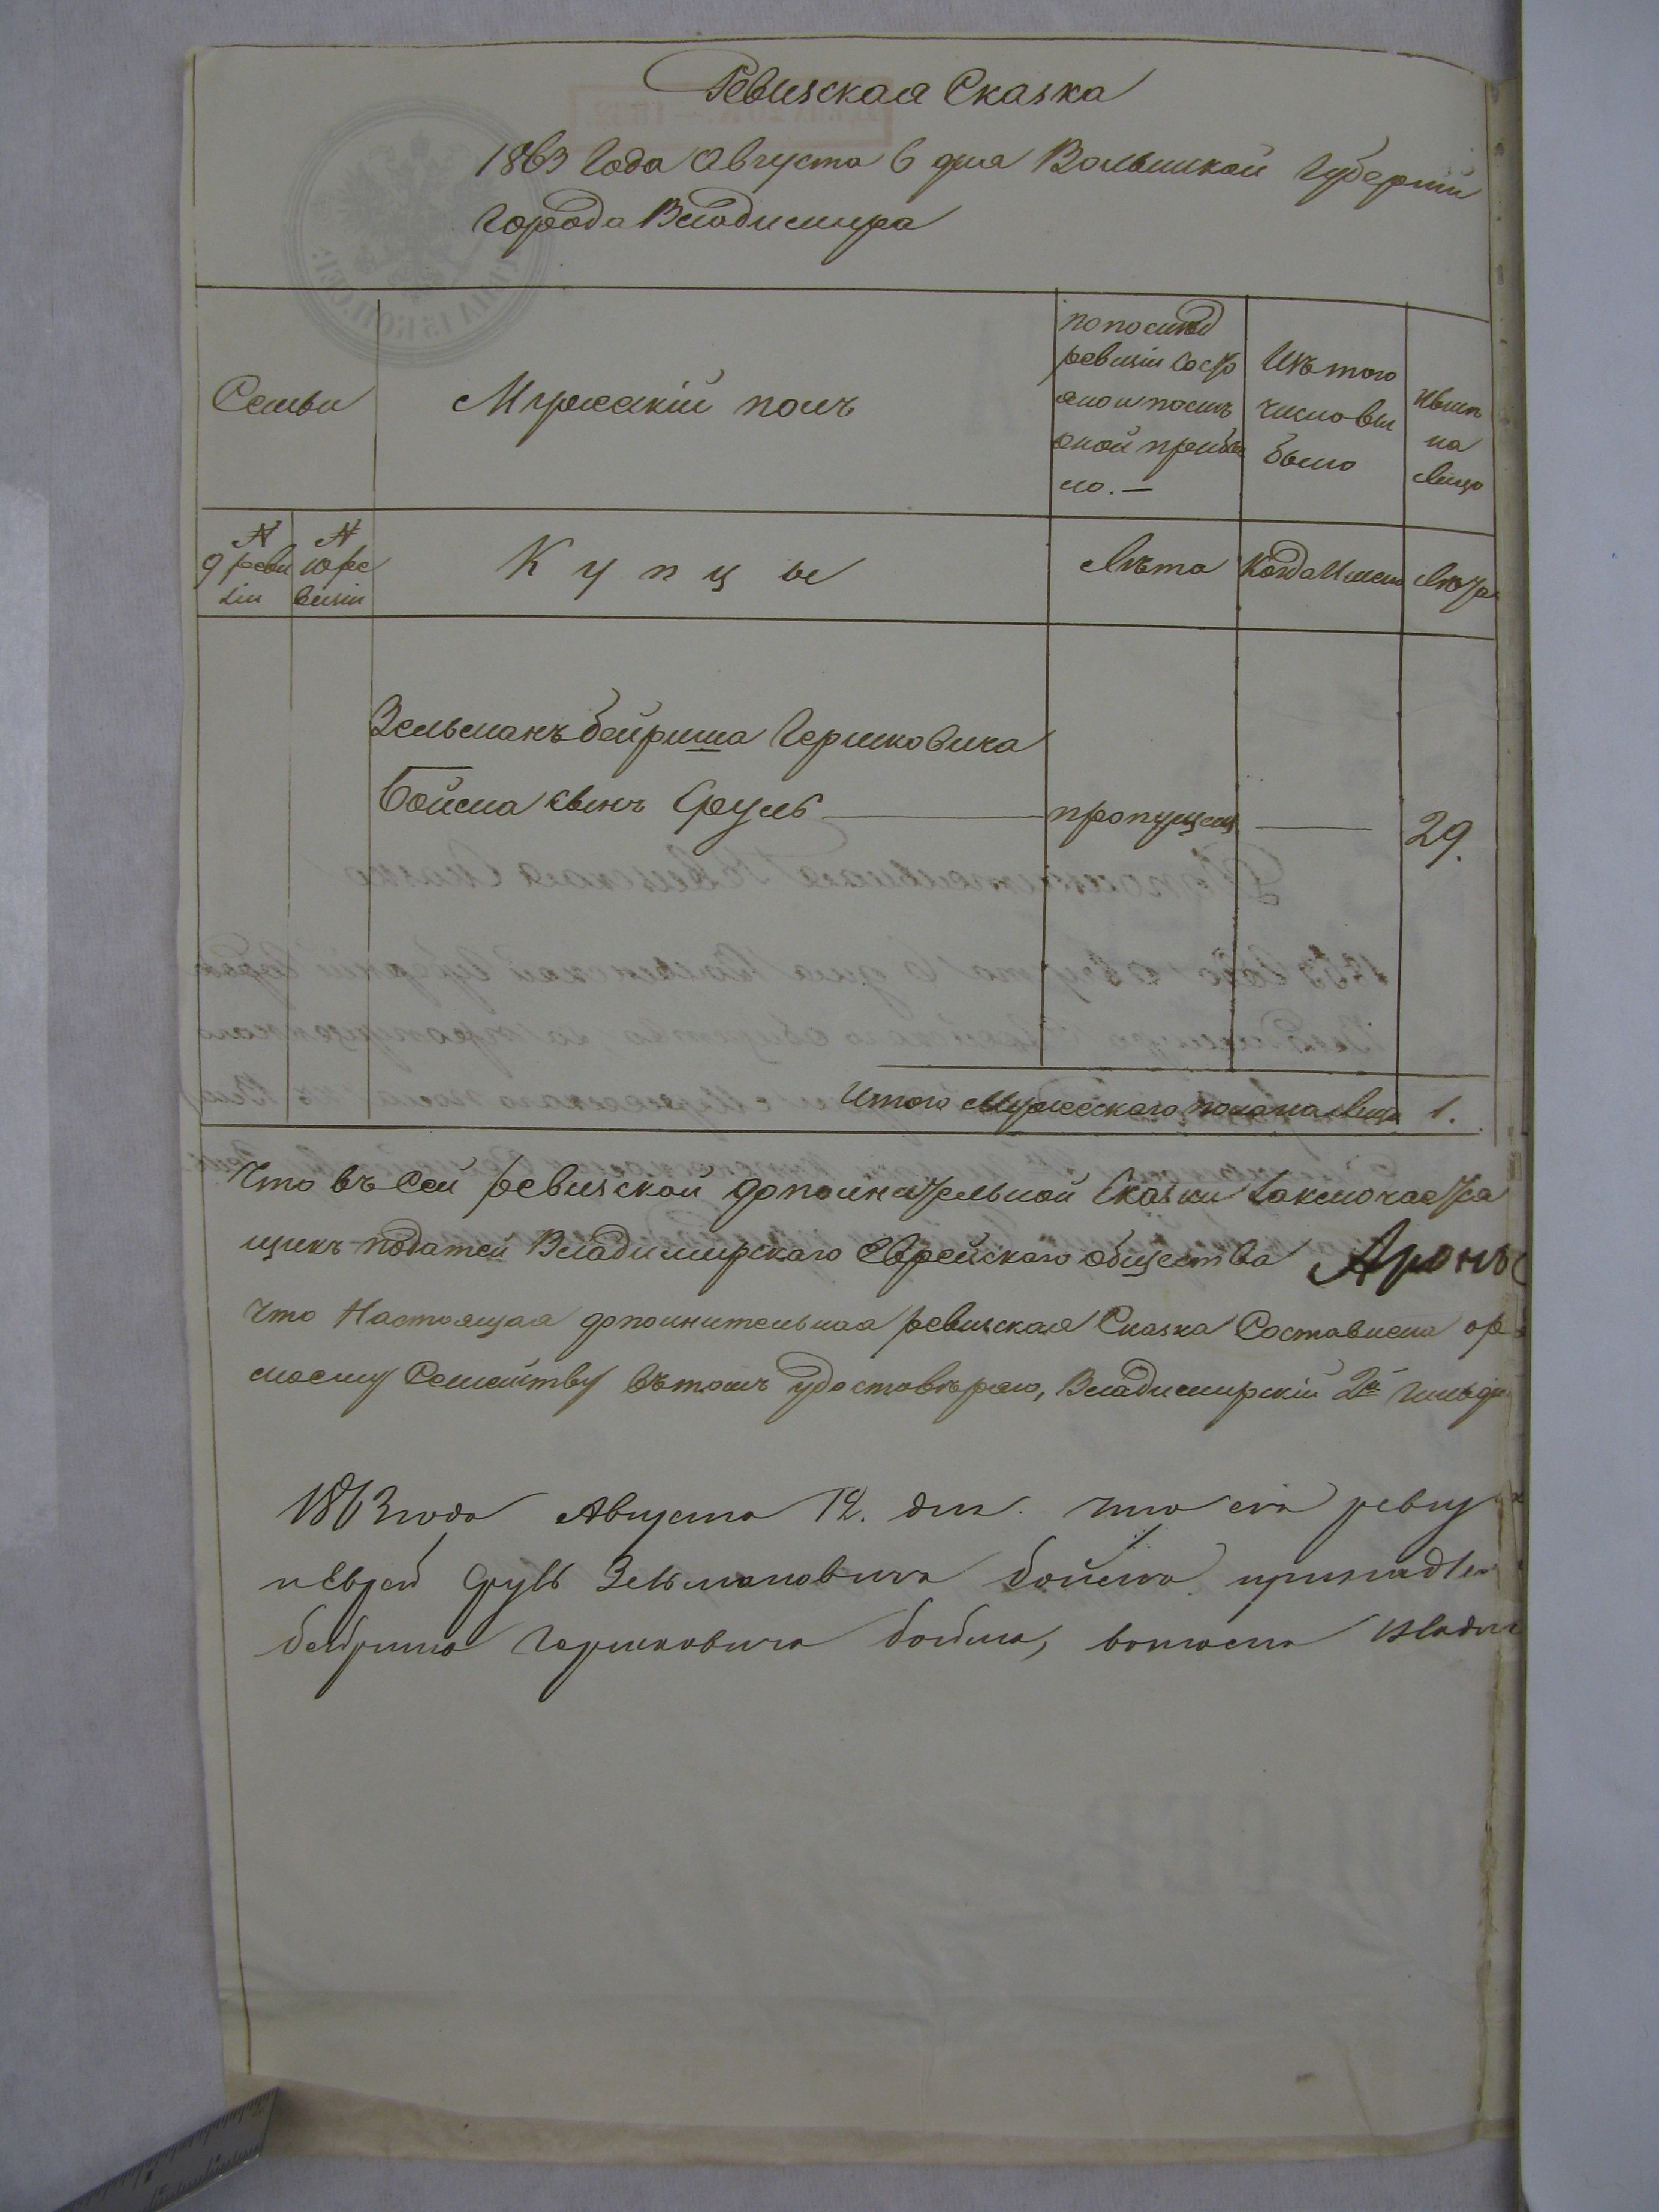 Ревизская Сказка
1863 Года Августа 6 дня Волынской Губерніи
Города Владимира
Семьи
Мужескій полъ
по послѣд
ревизіи состо
яло и послѣ
оной прибы
ло. —
Изъ того
число вы
было
Нынѣ
на
лицо
№
9 реви
зіи
№
10 ре
визіи
Купцы
Лѣта
Когда Имено
Лѣта
Зельманъ бейриша Гершковича
Бойма сынъ Сруль
пропущен
29.
Итого Мужескаго пола на Лицо 1.
Что въ Сей ревизской дополнительной Сказки Заключается
щикъ податей Владимирскаго Еврейскаго общества Аронъ
Что Настоящая дополнительная ревизская Сказка Составлена
моему Семейству вътомъ удостовѣряю, Владимирскій 2й Гильди
1863 года Августа 12. дня. что сія
Еврей Сруль Зельмановича бойма
бейриша Гершковича бойма,